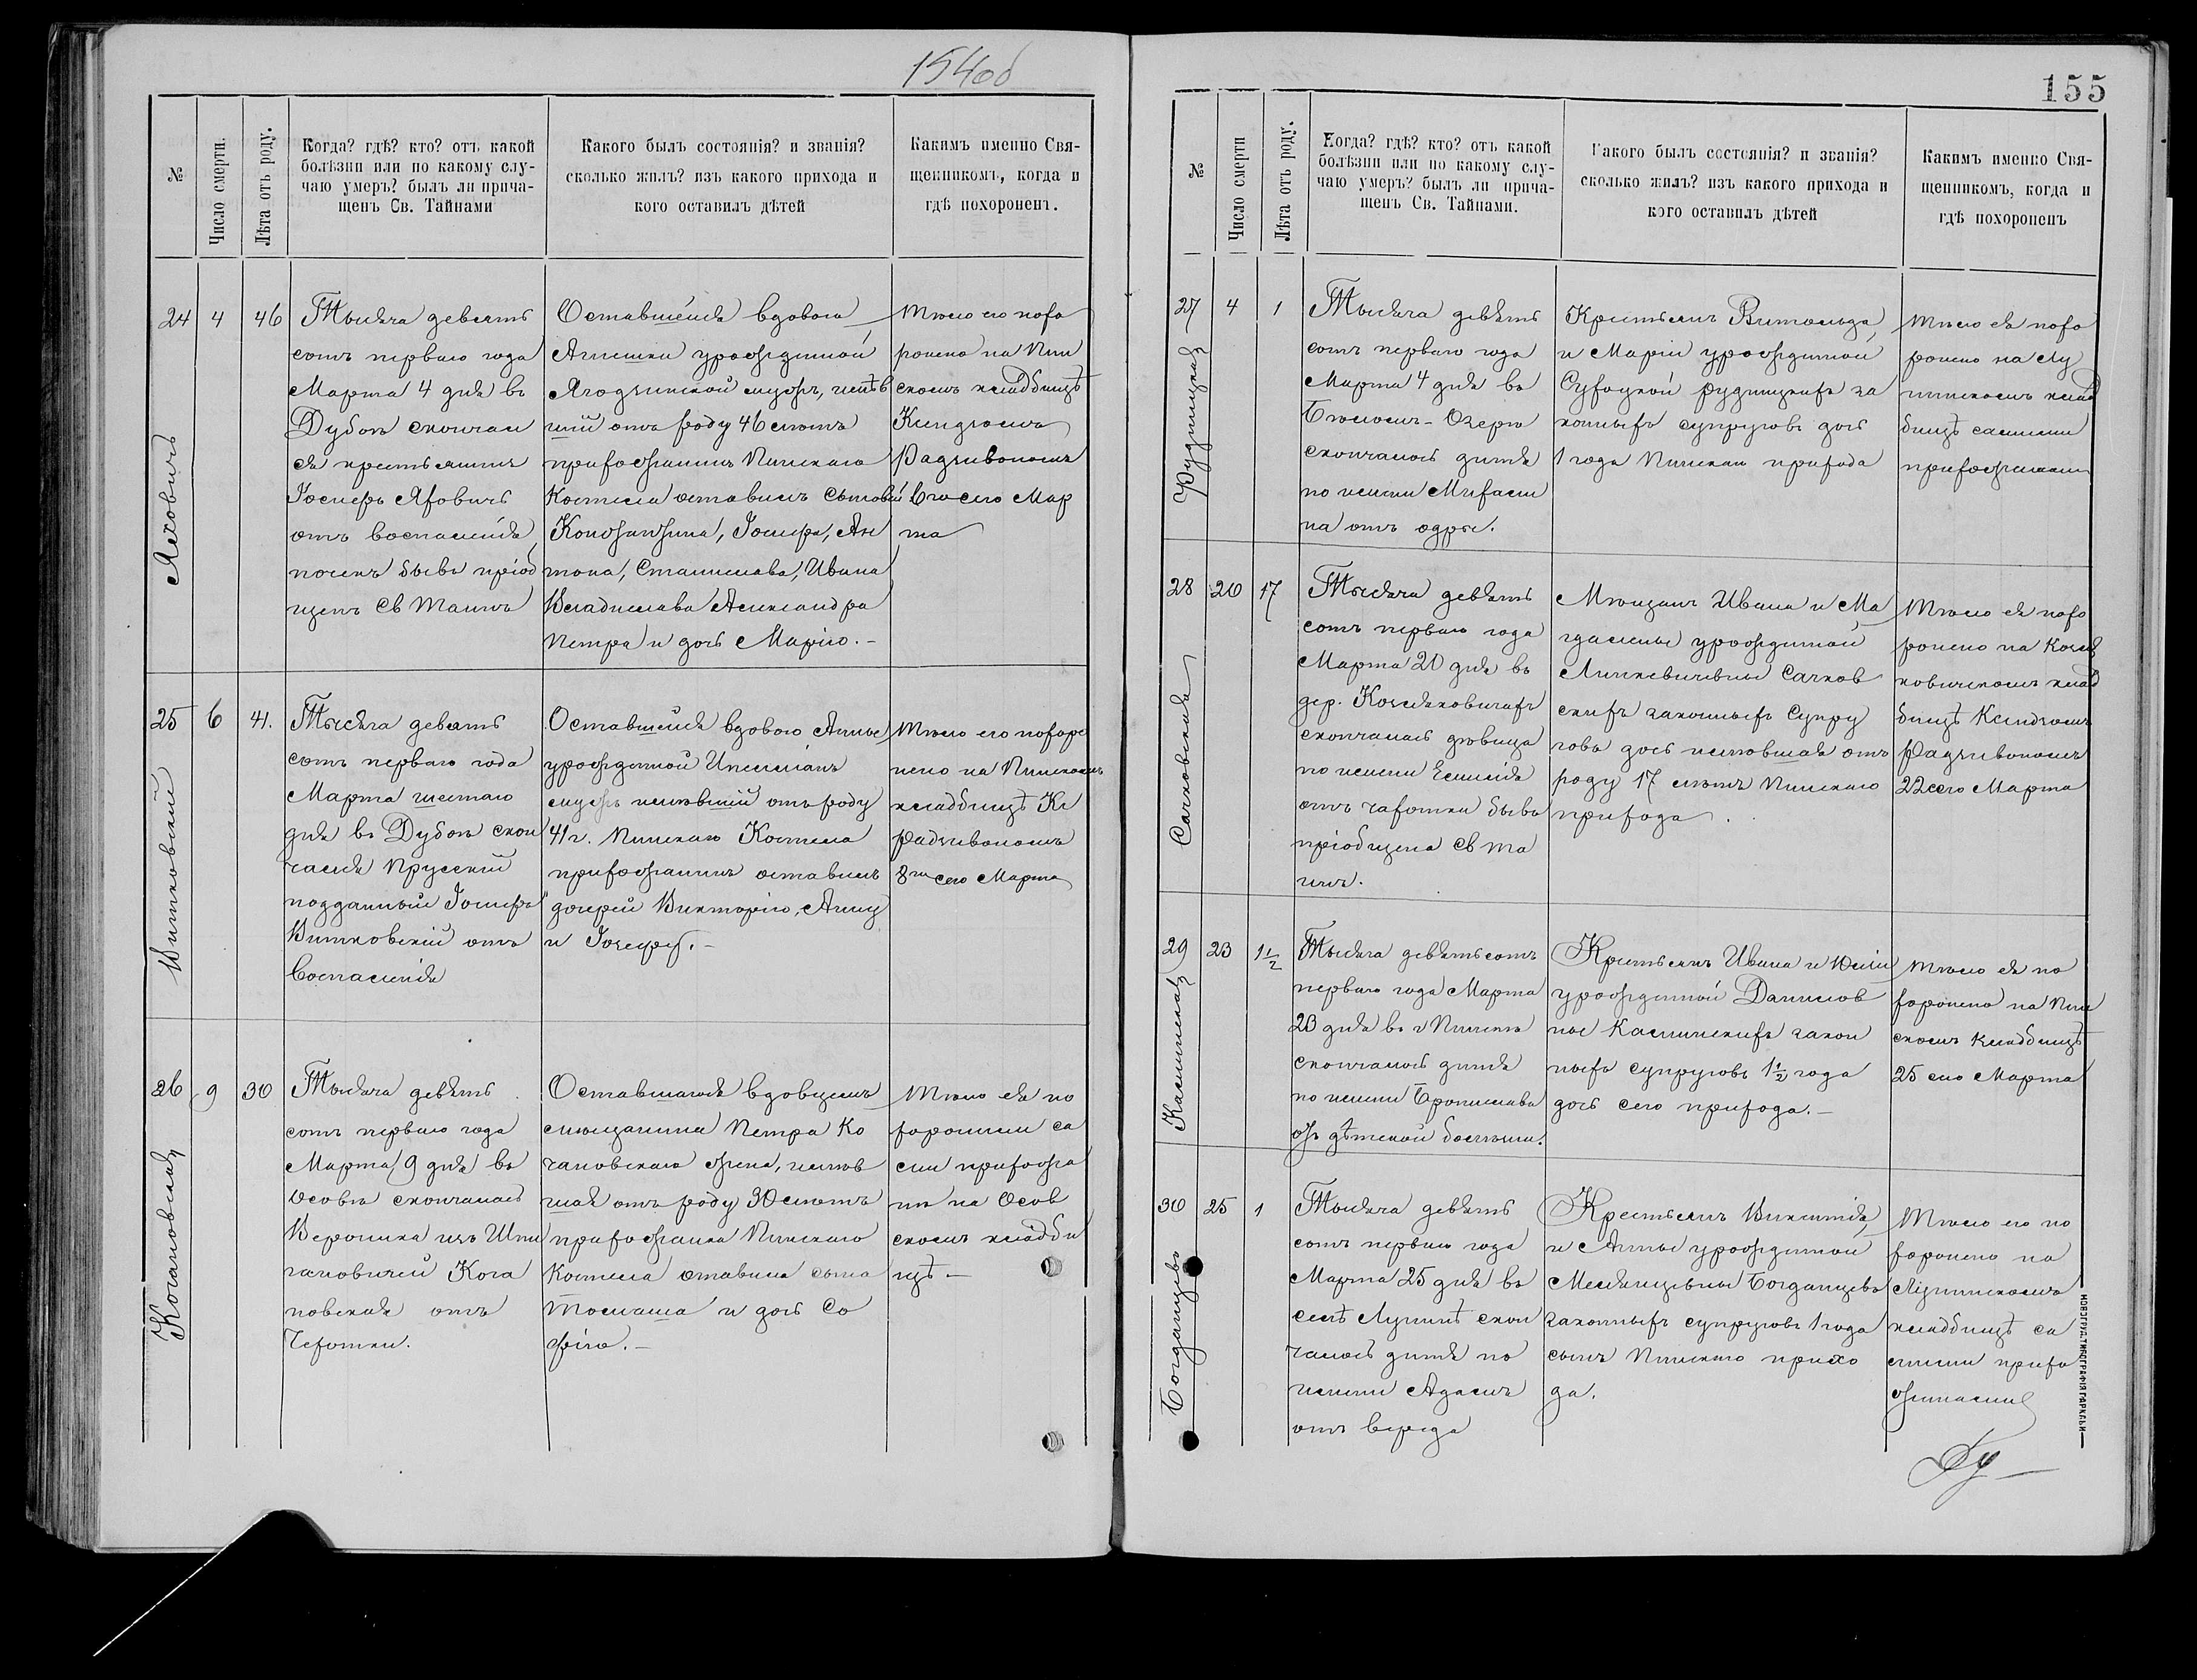 154об
№
Число смерти.
Лѣта отъ роду.
Когда? гдѣ? кто? отъ какой
болѣзни или по какому слу-
чаю умеръ? былъ ли прича-
щенъ Св. Тайнами
Какого былъ состоянія? и званія?
сколько жилъ? изъ какого прихода и
кого оставилъ дѣтей
Какимъ именно Свя-
щенникомъ, когда и
гдѣ похороненъ.
24
4
46
Яховичъ
Тысяча девять
сотъ перваго года
Марта 4 дня въ
Дубоѣ скончал
ся крестьянинъ
Іосифъ Яховичъ
отъ воспаленія
почекъ бывъ пріоб
щенъ Св Таинъ
Оставшейся вдовою
Агнешки урожденной
Ягодзинской мужъ, имѣв
шій отъ роду 46 лѣтъ
прихожанинъ Пинскаго
Костела оставилъ сыновей
Константина, Іосифа, Ан
тона, Станислава, Ивана
Владислава Александра
Петра и дочь Марію.-
Тѣло его похо
ронено на Пин
скомъ кладбищѣ
Ксендзомъ
Радзивономъ
6го сего Мар
та
25
6
41.
Витковскій
Тысяча девять
сотъ перваго года
Марта шестаго
дня въ Дубоѣ скон
чался Прусскій
подданный Іосифъ
Витковскій отъ
Воспаленія
Оставшейся вдовою Анны
урожденной
мужъ имѣвшій отъ роду
41 г. Пинскаго Костела
прихожанинъ оставилъ
дочерей Викторію, Анну
и Іозефу.-
Тѣло его похоро
нено на Пинскомъ
кладбищѣ Кс
Радзивономъ
8го сего Марта
26
9
30
Кочановская
Тысяча девять
сотъ перваго года
Марта 9 дня въ
Особѣ скончалась
Вероника изъ Шпи
гановичей Коча
новская отъ
Чехотки.
Оставшагося вдовцемъ
мѣщанина Петра Ко
чановскаго жена, имѣв
шая отъ роду 30 лѣтъ
прихожанка Пинскаго
Костела ставила сына
Томаша и дочь Со
фію.-
Тѣло ея по
хоронили са
ми прихожа
не на Осов
скомъ кладби
щѣ-
155
№
Число смерти
Лѣта отъ роду.
Когда? гдѣ? кто? отъ какой
болѣзни или по какому слу-
чаю умеръ? былъ ли прича-
щенъ Св. Тайнами.
Какого былъ состоянія? и званія?
сколько жилъ? изъ какого прихода и
кого оставилъ дѣтей
Какимъ именно Свя-
щенникомъ, когда и
гдѣ похороненъ
27
4
1
Рудницкая
Тысяча девять
сотъ перваго года
Марта 4 дня въ
Бѣломъ-Озерѣ
скончалось дитя
по имени Михали
на отъ одры.
Крестьянъ Витольда
и Маріи урожденной
Сухоцкой Рудницкихъ за
конныхъ супруговъ дочь
1 года Пинскаго прихода
Тѣло ея похо
ронено на Лу
нинскомъ клад
бищѣ самими
прихожанами
28
20
17
Сачковская
Тысяча девять
сотъ перваго года
Марта 20 дня въ
дер. Козляковичахъ
скончалась дѣвица
по имени Емилія
отъ чахотки бывъ
пріобщена Св та
инъ.
Мѣщанъ Ивана и Ма
гдалены урожденной
Линкевичевны Сачков
скихъ законныхъ Супру
говъ дочь имѣвшая отъ
роду 17 лѣтъ Пинскаго
прихода.
Тѣло ея похо
ронено на Козля
ковичскомъ клад
бищѣ Ксендзомъ
Радзивономъ
22 сего Марта
29
23
1½
Каминская
Тысяча девятьсотъ
перваго года Марта
23 дня въ г Пинскѣ
скончалось дитя
по имени Бронислава
отъ дѣтской болѣзни.
Крестьянъ Ивана и Юліи
урожденной Данилов
ны Каминскихъ закон
ныхъ супруговъ 1½ года
дочь сего прихода.-
Тѣло ея по
хоронено на Пин
скомъ кладбищѣ
25 сего Марта
30
25
1
Богданцевъ
Тысяча девять
сотъ перваго года
Марта 25 дня въ
селѣ Лунинѣ скон
чалось дитя по
имени Адамъ
отъ вереда
Крестьянъ Викентія
и Анны урожденной
Богданцевъ
законныхъ супруговъ 1 года
сынъ Пинскаго прихо
да.
Тѣло его по
хоронено на
Лунинскомъ
кладбищѣ са
мими прихо
жанами
НОВОГРУД. ТИПОГРАФІЯ ГАРКАВИ